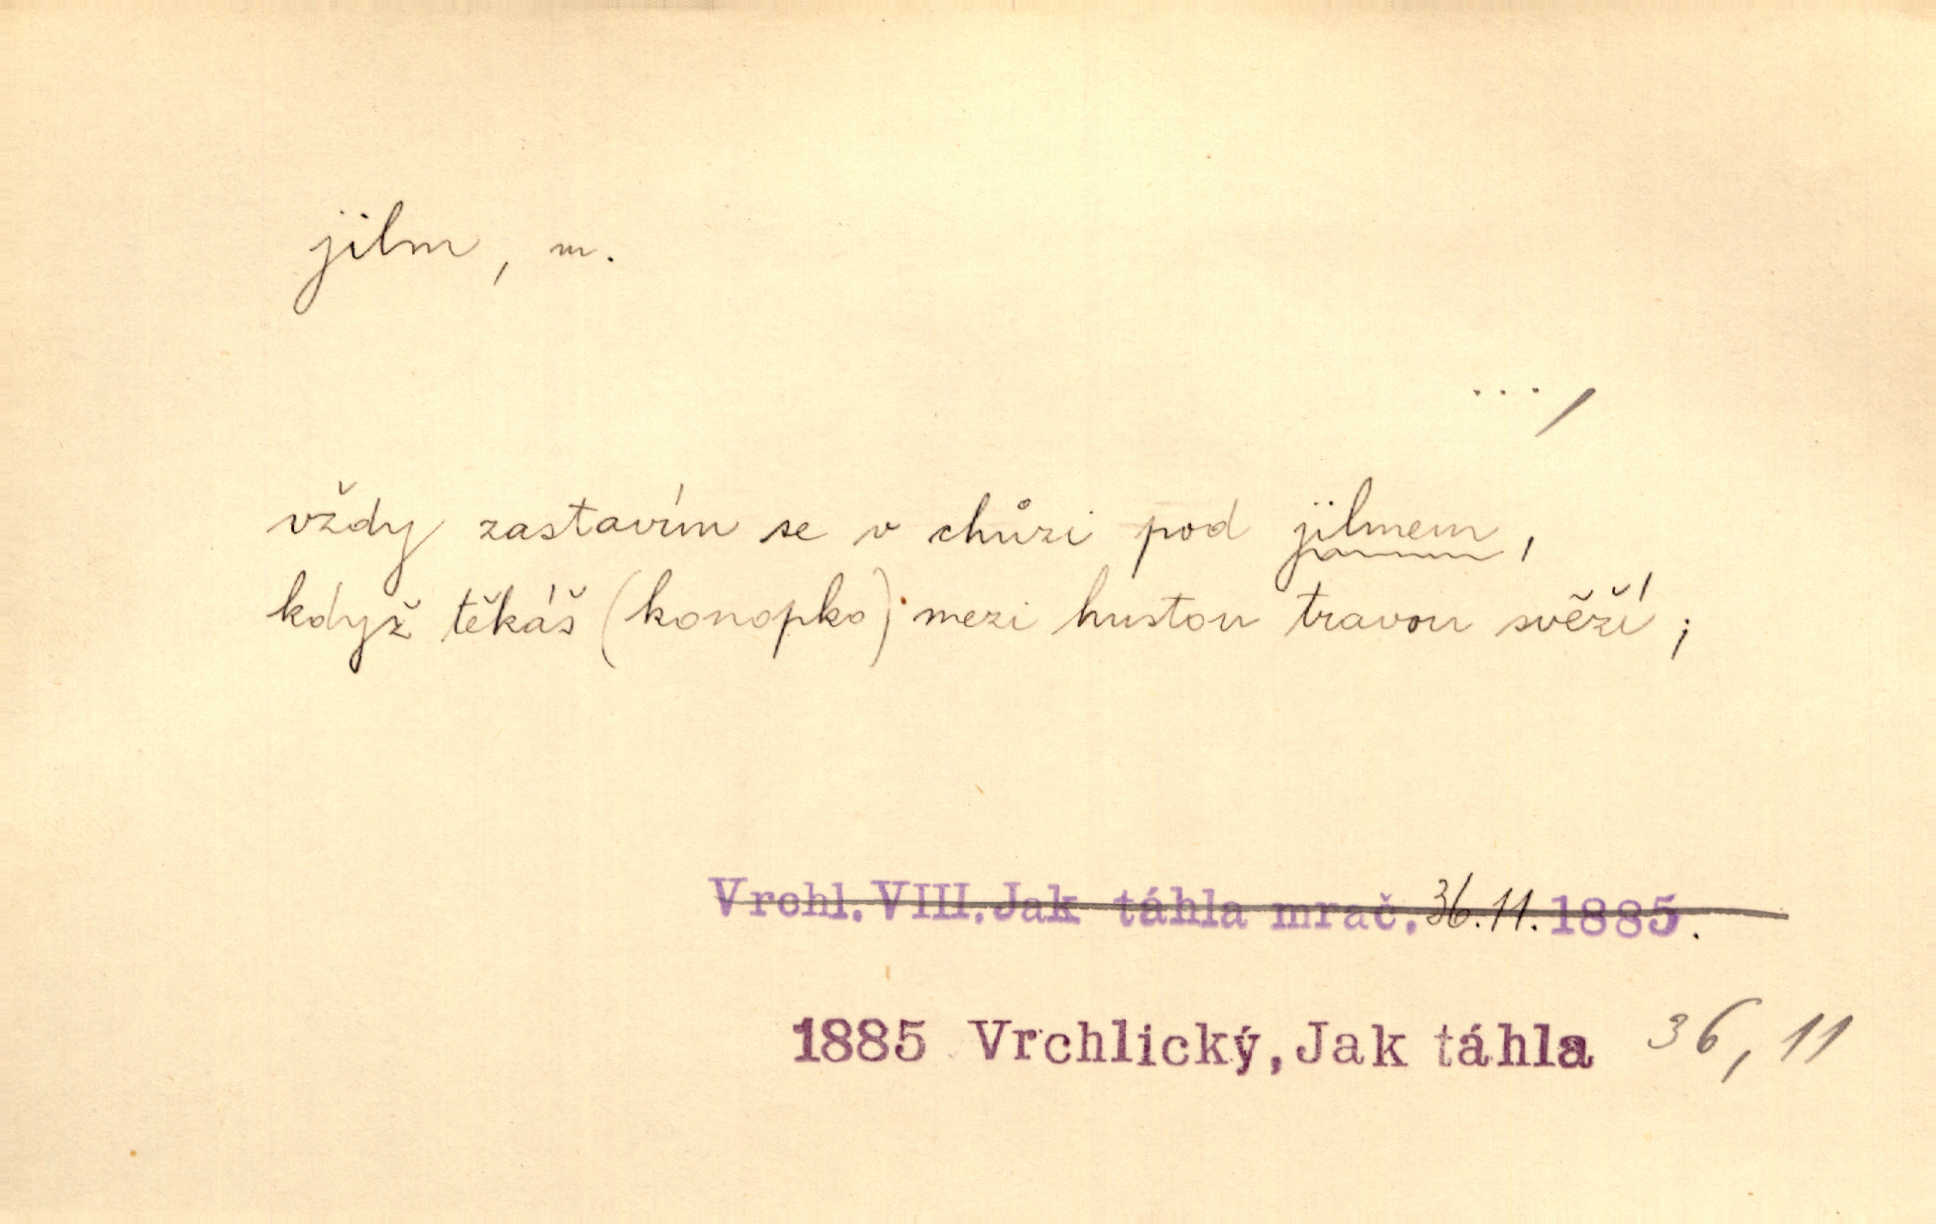 jilm, m.
... /
vždy zastavím se v chůzi pod jilmem,
když těkáš (konopko) mezi hustou travou svěží;
Vrchl. VIII. Jak táhla mrač. 36.11. 1885.
1885 Vrchlický, Jak táhla 36, 11